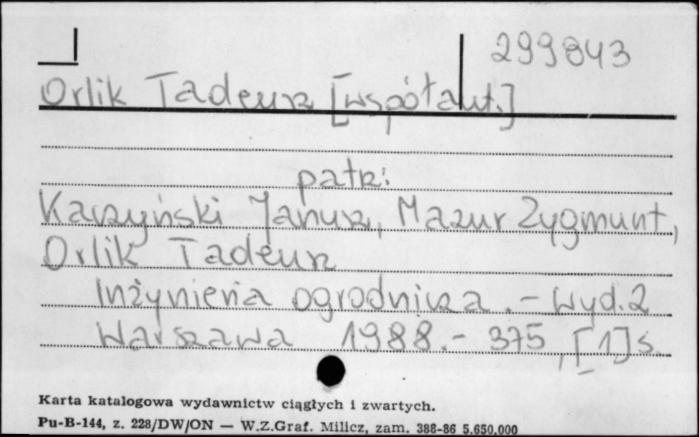 299843
Orlik Tadeusz [współaut.]
patrz:
Karzyński Janusz, Mazur Zygmunt,
Orlik Tadeusz
Inżynieria ogrodnicza .- Wyd. 2
Warszawa 1988.- 375, [1] s.
Karta katalogowa wydawnictw ciągłych i zwartych.
Pu-B-144, z. 228/DW/ON — W.Z.Graf. Milicz, zam. 388-86 5.650.000